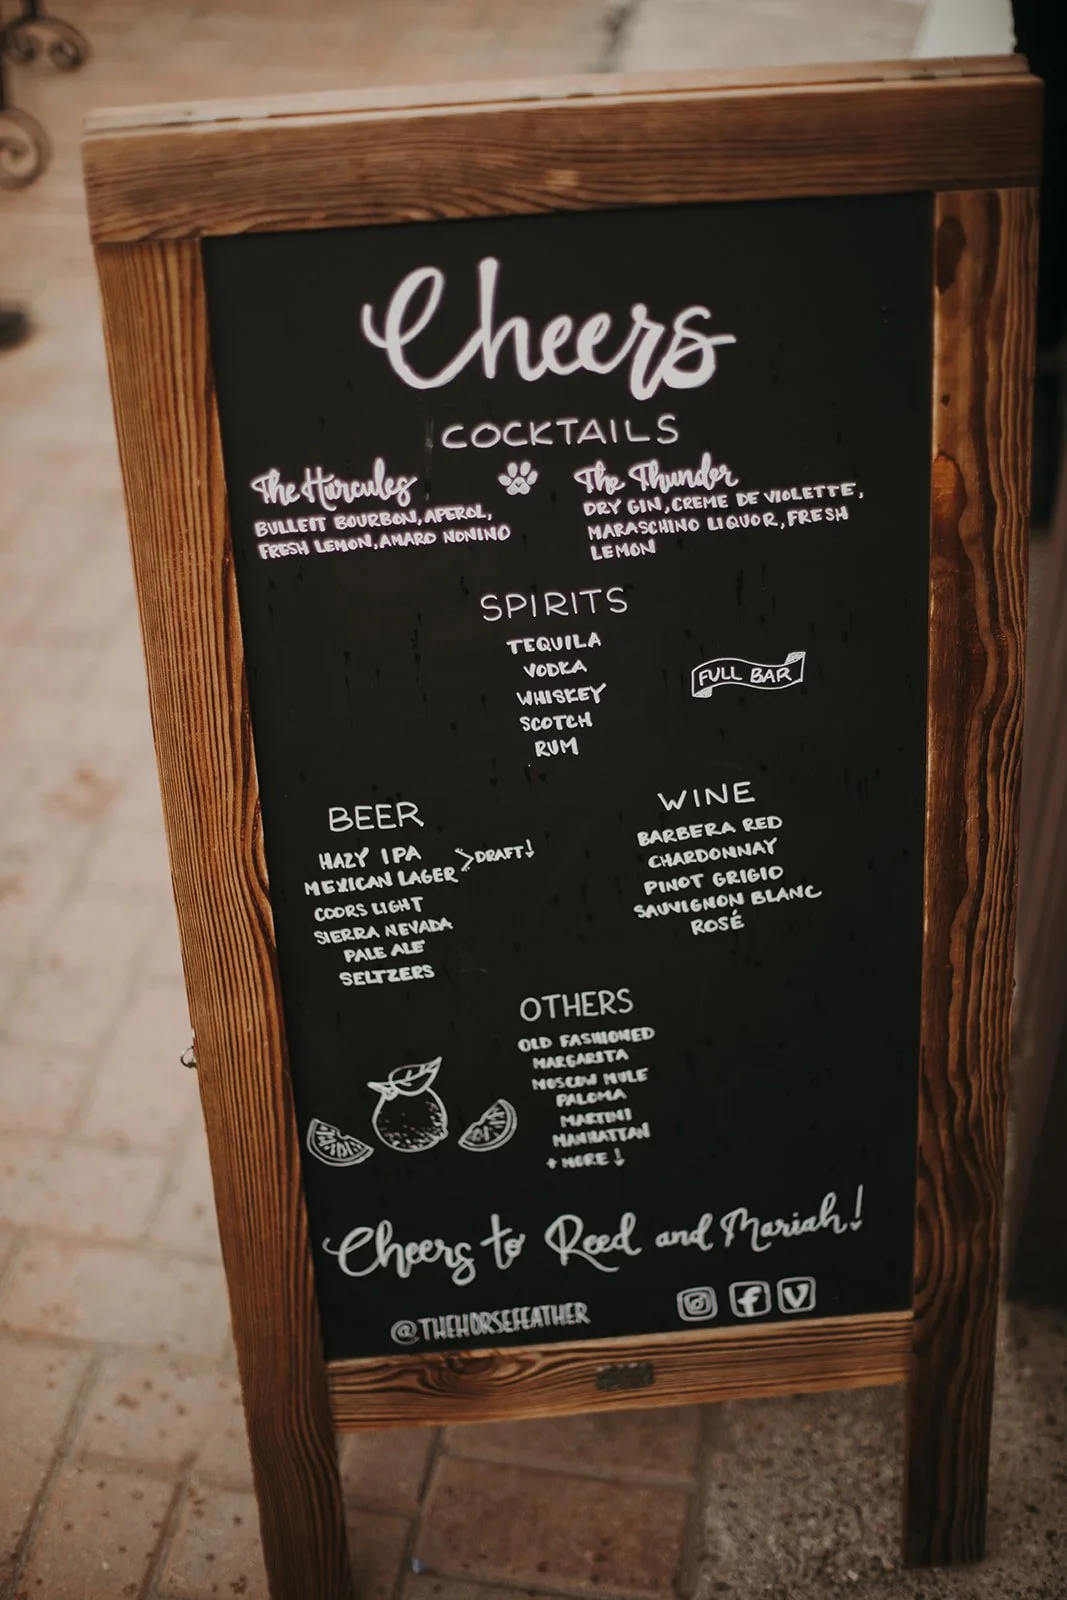 Cheers
COCKTAILS
The Hurcules
BULLEIT BOURBON, APEROL,
FRESH LEMON, AMARO NONINO
The Thunder
DRY GIN, CREME DE VIOLETTE,
MARASCHINO LIQUOR, FRESH
LEMON
SPIRITS
TEQUILA
VODKA
WHISKEY
SCOTCH
RUM
FULL BAR
BEER
HAZY IPA
MEXICAN LAGER
DRAFT!
COORS LIGHT
SIERRA NEVADA
PALE ALE
SELTZERS
WINE
BARBERA RED
CHARDONNAY
PINOT GRIGIO
SAUVIGNON BLANC
ROSÉ
OTHERS
OLD FASHIONED
MARGARITA
MOSCOW MULE
PALOMA
MARTINI
MANHATTAN
+ MORE!
Cheers to Reed and Mariah!
@THEHORSEFEATHER